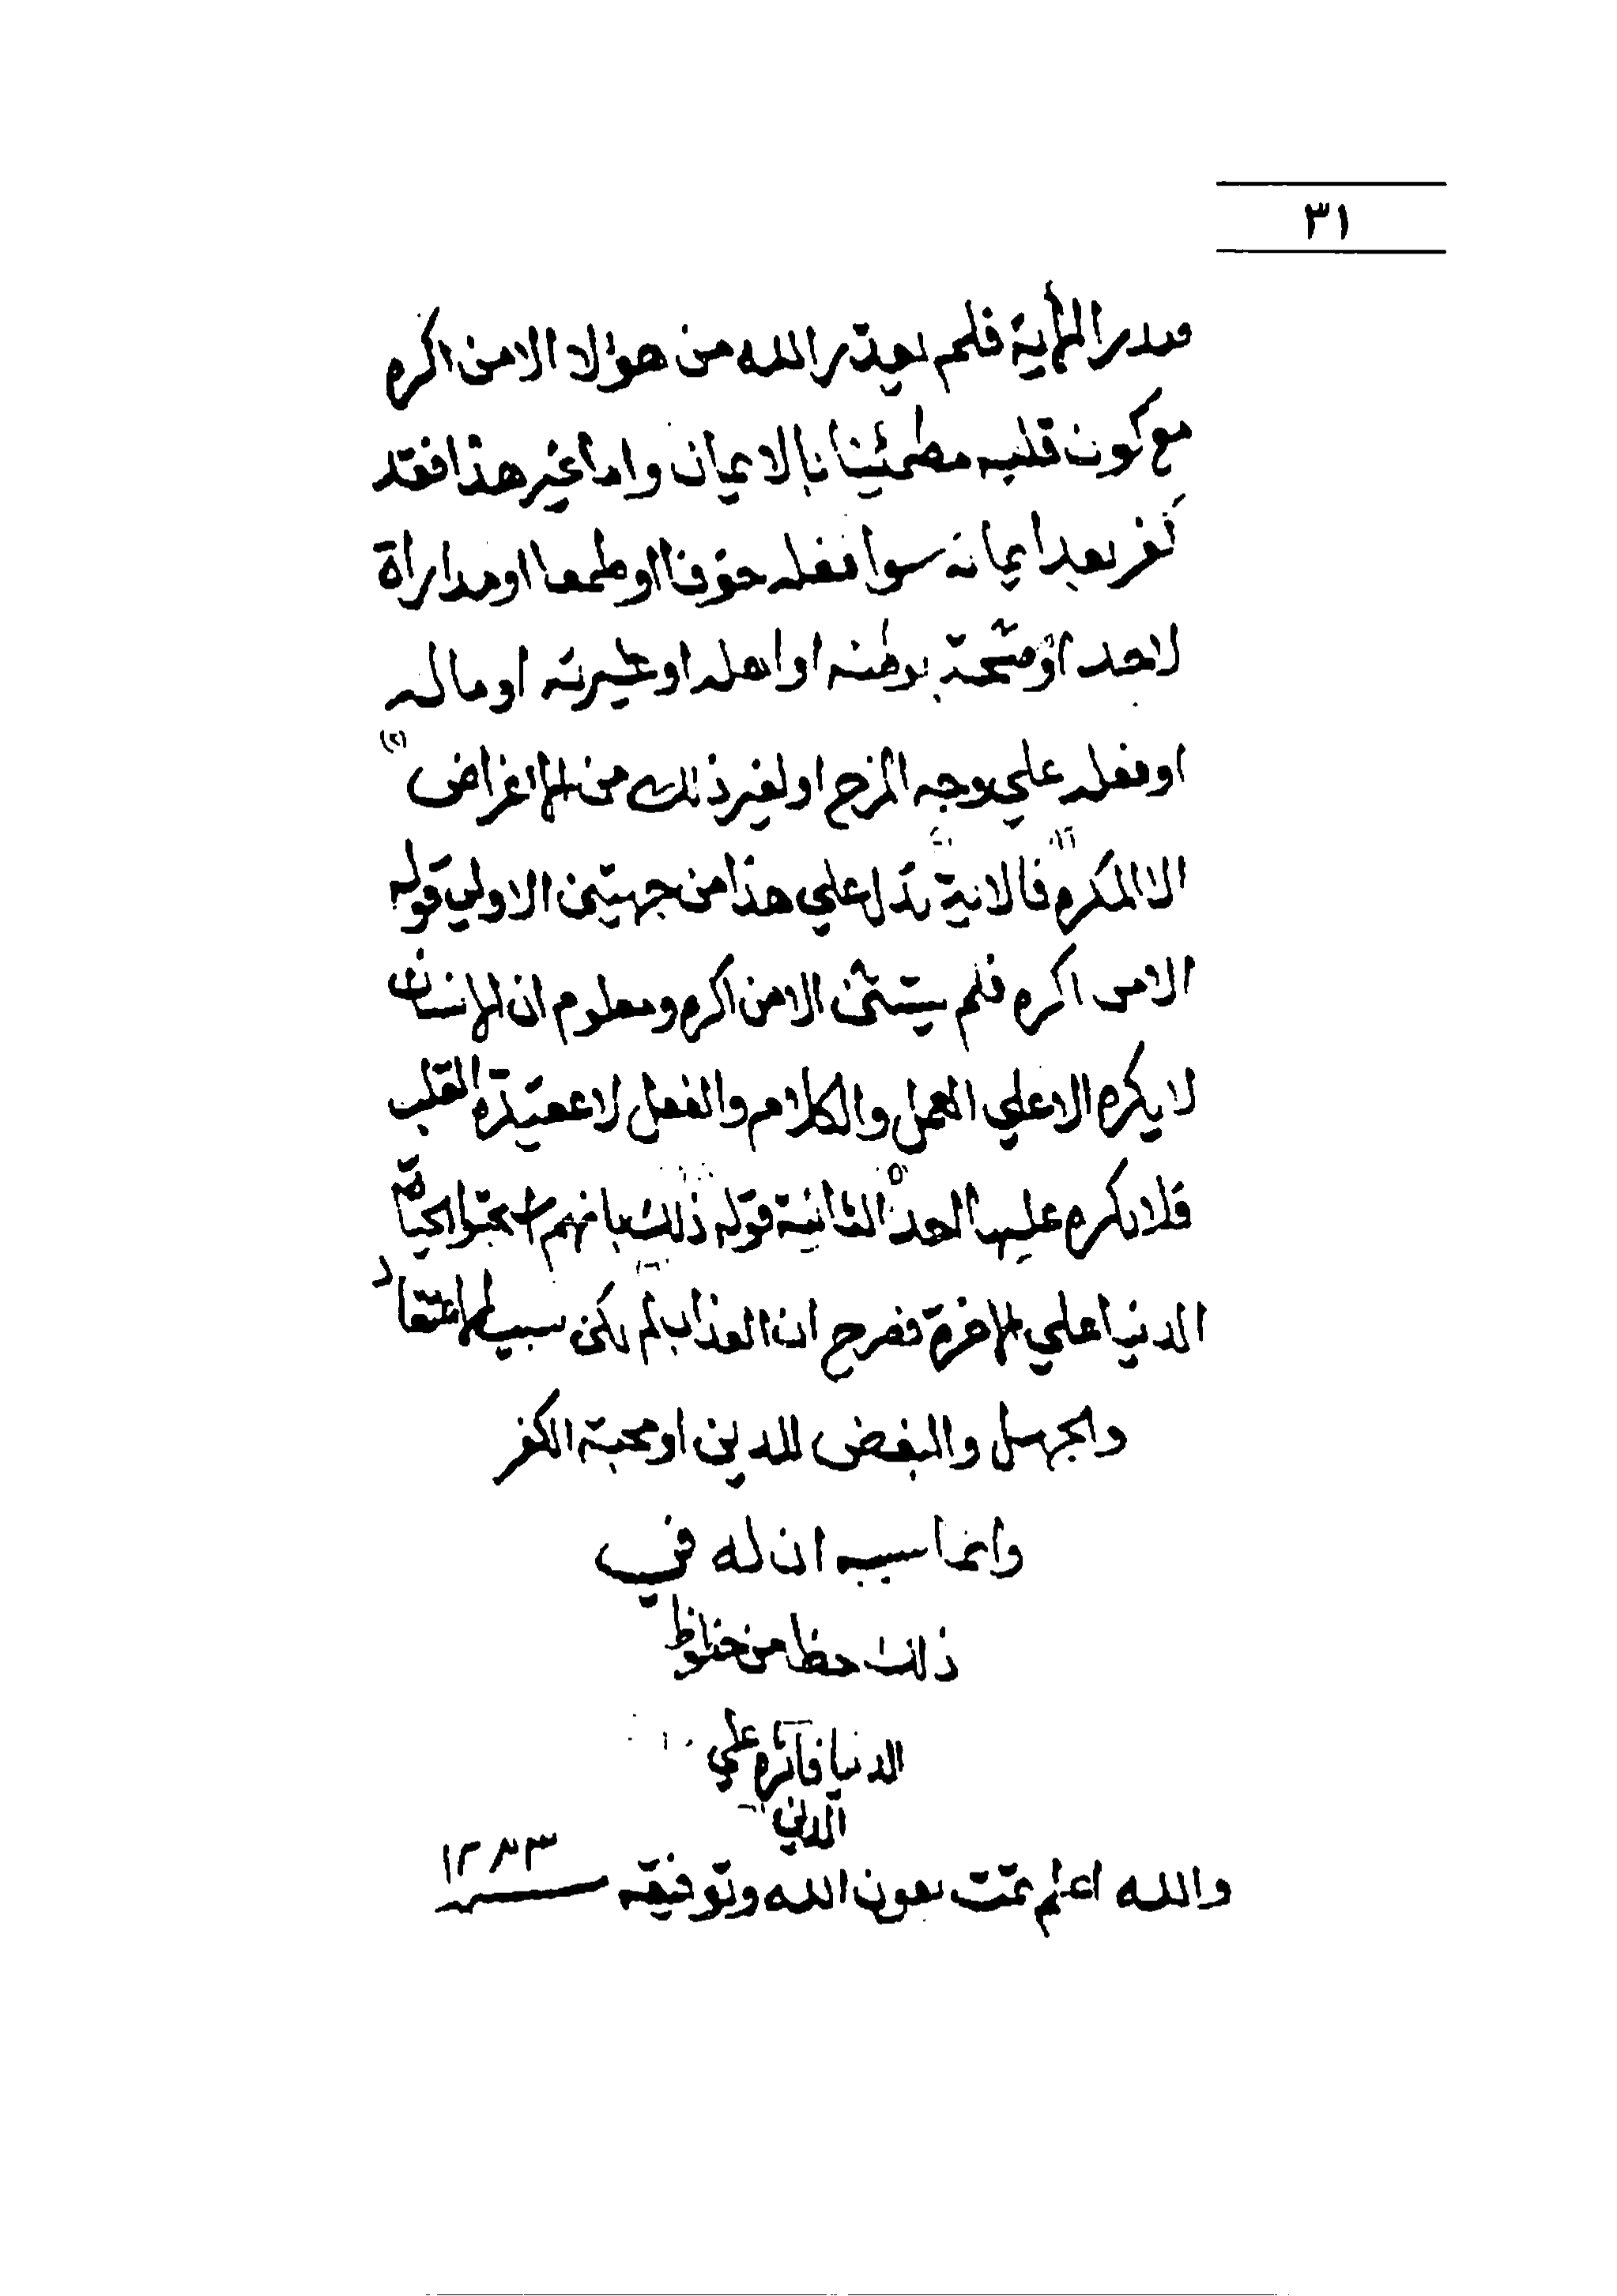 ٣١
صدر الآية فلم يعذر الله من هؤلا الا من اكره
مع كون قلبه مطمئنا بالايمان واما غير هذا فقد
كفر بعد ايمانه سوا فعله خوفا او طمعا او مداراة
لاحد او مشحة بوطنه او اهله او عشيرته او ماله
او فعله علي وجه المزح او لغير ذلك من الاغراض
الا المكره فالاية تدل علي هذا من جهتين الاولي قوله
الا من اكره فلم يستثن الا من اكره ومعلوم ان الانسان
لا يكره الا علي العمل والكلام والفعل لا عقيدة القلب
فلا يكره عليها احد الثانية قوله ذلك بانهم استحبوا الحياة
الدنيا علي الاخرة فصرح ان العذاب لم يكن بسبب الاعتقاد
والجهل والبغض للدين او محبة الكفر
وانما سببه ان له في
ذلك حظا من حظوظ
الدنيا فآثره علي
الدين
والله اعلم تمت بعون الله وتوفيقه